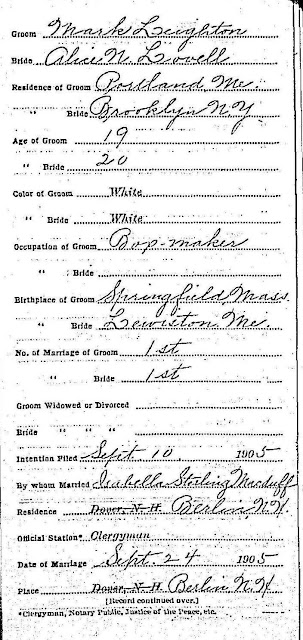 Groom Mark Leighton
Bride Alice N. Lovell
Residence of Groom Portland Me.
" Bride Brooklyn N.Y.
Age of Groom 19
" Bride 20
Color of Groom White
" Bride White
Occupation of Groom Box-maker
" Bride
Birthplace of Groom Springfield Mass.
" Bride Lewiston Me
No. of Marriage of Groom 1st
" Bride 1st
Groom Widowed or Divorced
Bride " " "
Intention Filed Sept 10 1905
By whom Married Isabella Sterling Macduff
Residence Dover, N. H. Berlin N.H.
Official Station* Clergyman
Date of Marriage Sept 24 1905
Place Dover, N. H. Berlin N.H
[Record continued over.]
*Clergyman, Notary Public, Justice of the Peace, etc.